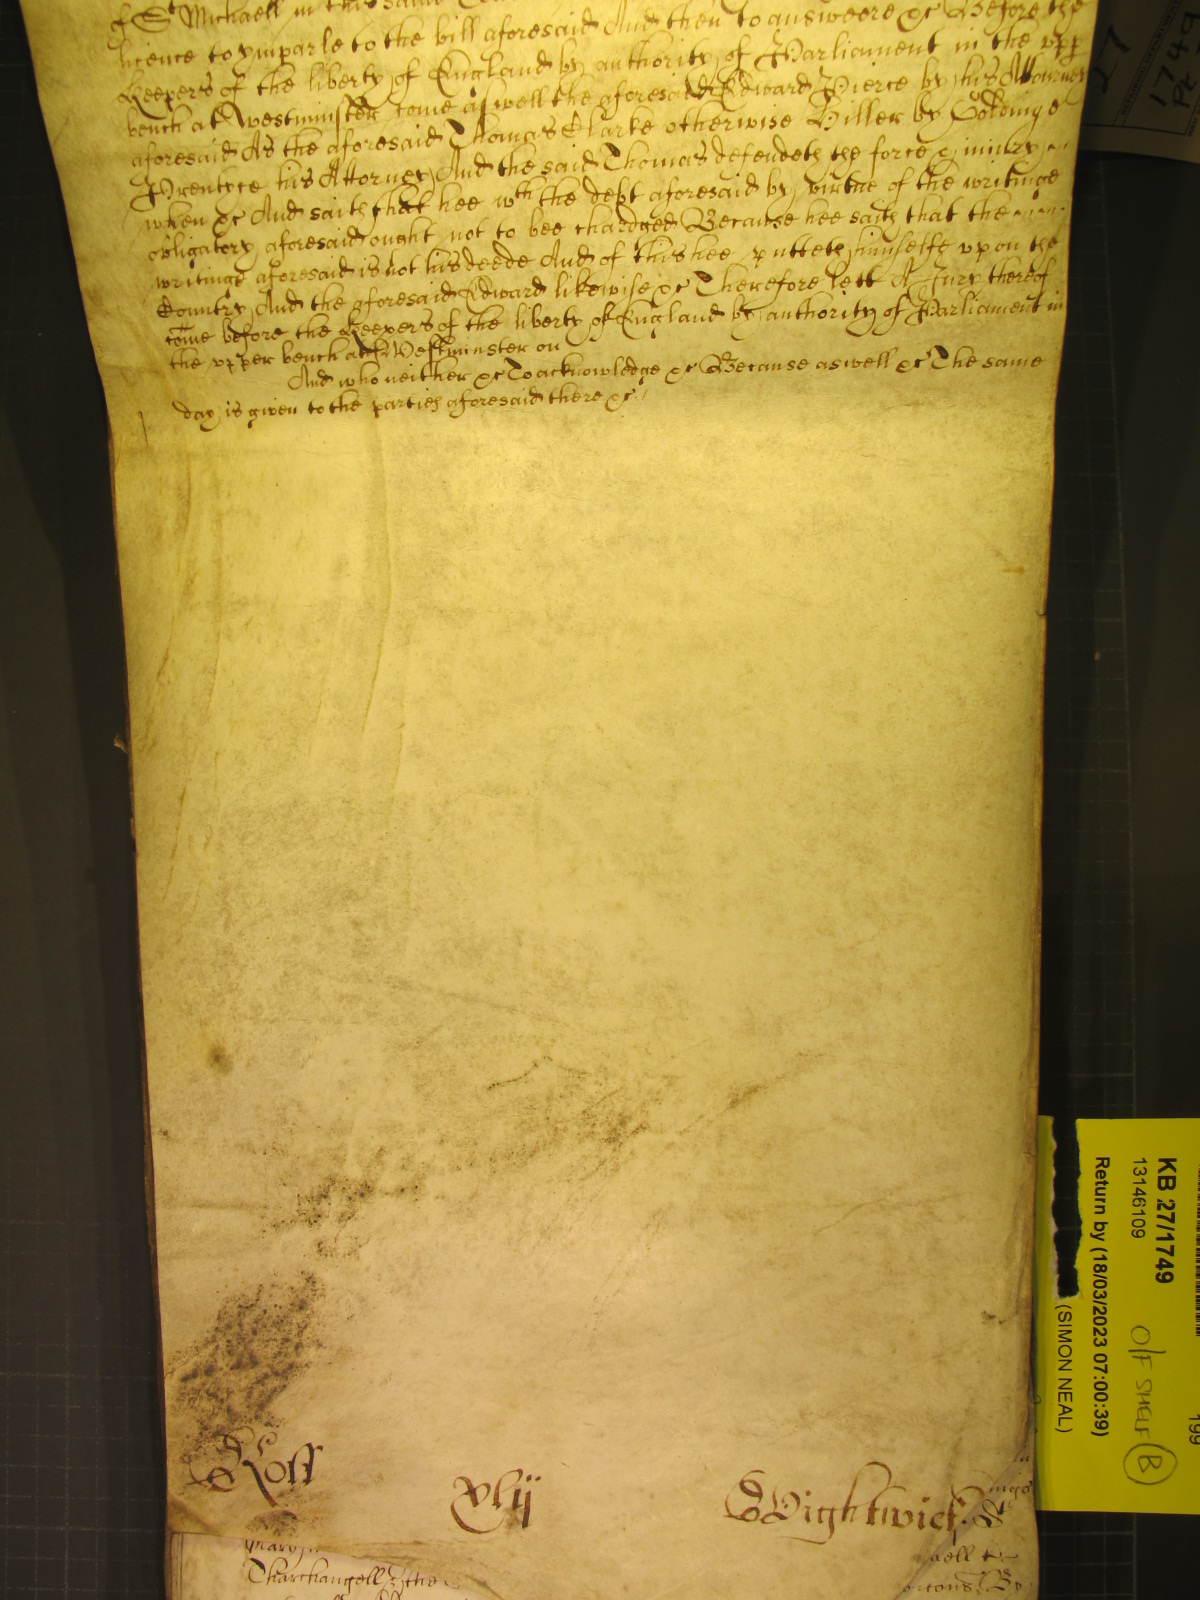 of St Michaell in this same
licence to ymparle to the bill aforesaid And then to answeere &c Before the
Keepers of the liberty of England by authority of Parliament in the upp
bench at Westminster come aswell the aforesaid Edward Pierce by his Attourney
aforesaid As the aforesaid Thomas Clarke otherwise Hiller by Goldinge
Prentyce his Attorney And the said Thomas defendeth the force & iniury
when &c And saith that hee wth the debt aforesaid by virtue of the writinge
obligatory aforesaid ought not to bee chardged Because hee saith that the
writinge aforesaid is not his deede And of this hee putteth himselfe vpon the
Country And the aforesaid Edward likewise &c Therefore lett A Jury thereof
come before the Keepers of the liberty of England by authority of Parliament in
the vpper bench att Westminster on
And who neither &c To acknowledge &c Because aswell &c The same
day is given to the parties aforesaid there &c
Roll
xlij
Wightwick
Tharchangell
KB 27/1749
13146109
Return by (18/03/2023 07:00:39)
(SIMON NEAL)
O/F SHELF B
199
27
1749